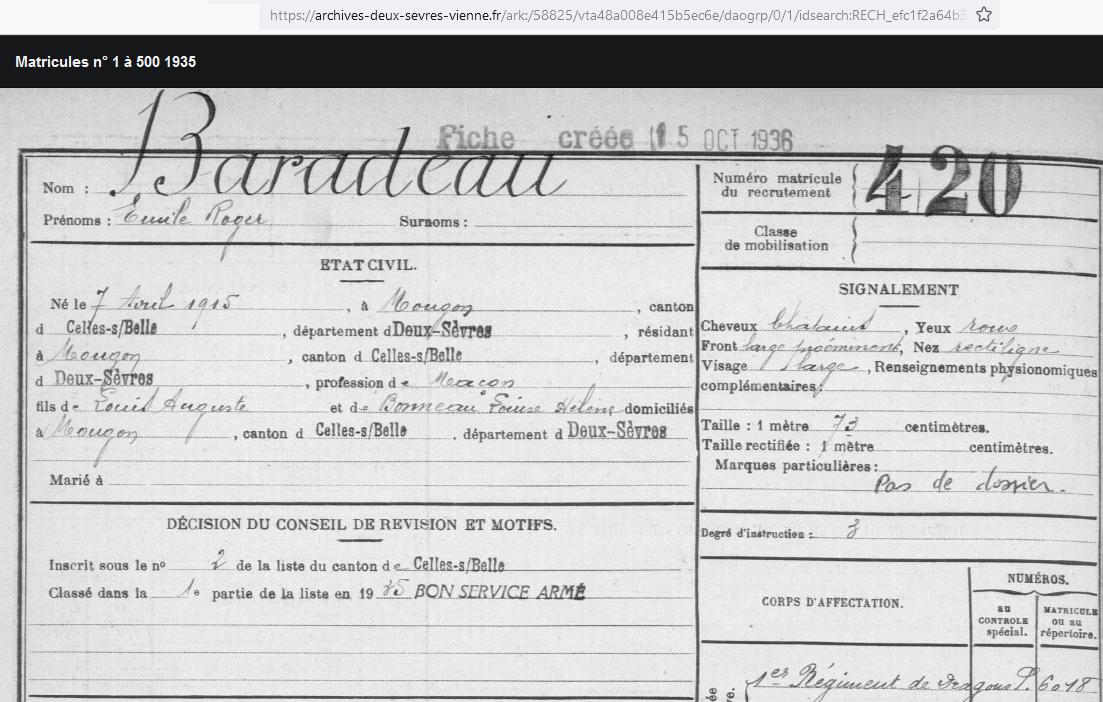 https://archives-deux-sevres-vienne.fr/ark:/58825/vta48a008e415b5ec6e/daogrp/0/1/idsearch:RECH_efc1f2a64b3
Matricules n° 1 à 500 1935
Fiche créée 15 OCT 1936
Nom : Baradeau
Prénoms : Emile Roger Surnoms :
ETAT CIVIL.
Né le 7 Avril 1915, à Mougon, canton
d Celles-s/Belle, département d Deux-Sèvres, résidant
à Mougon, canton d Celles-s/Belle, département
d Deux-Sèvres, profession de Maçon
fils de Louis Auguste et de Bonneau Louise Hélène domiciliés
à Mougon, canton d Celles-s/Belle, département d Deux-Sèvres
Marié à
DÉCISION DU CONSEIL DE REVISION ET MOTIFS.
Inscrit sous le no 2 de la liste du canton de Celles-s/Belle
Classé dans la 1e partie de la liste en 1935 BON SERVICE ARMÉ
Numéro matricule
du recrutement 420
Classe
de mobilisation
SIGNALEMENT
Cheveux Châtains, Yeux roux
Front large proéminent, Nez rectiligne
Visage large, Renseignements physionomiques
complémentaires :
Taille : 1 mètre 73 centimètres.
Taille rectifiée : 1 mètre centimètres.
Marques particulières :
Pas de dossier.
Degré d'instruction : 3
CORPS D'AFFECTATION.
NUMÉROS.
au
CONTROLE
spécial.
MATRICULE
ou au
répertoire.
1er Régiment de Dragons P. 6018